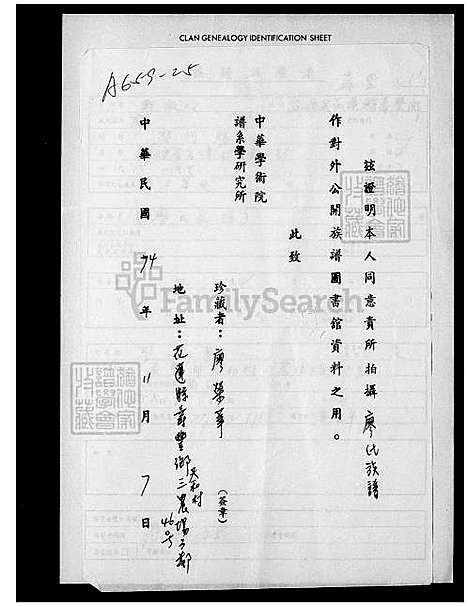 CLAN GENEALOGY IDENTIFICATION SHEET
A659-25
茲證明本人同意貴所拍攝廖氏族譜
作對外公開族譜圖書館資料之用。
此致
中華學術院
譜系學研究所
珍藏者：廖榮華（簽章）
地址：花蓮縣壽豐鄉天和村三農場
46号
中華民國 74 年 11 月 7 日
FamilySearch